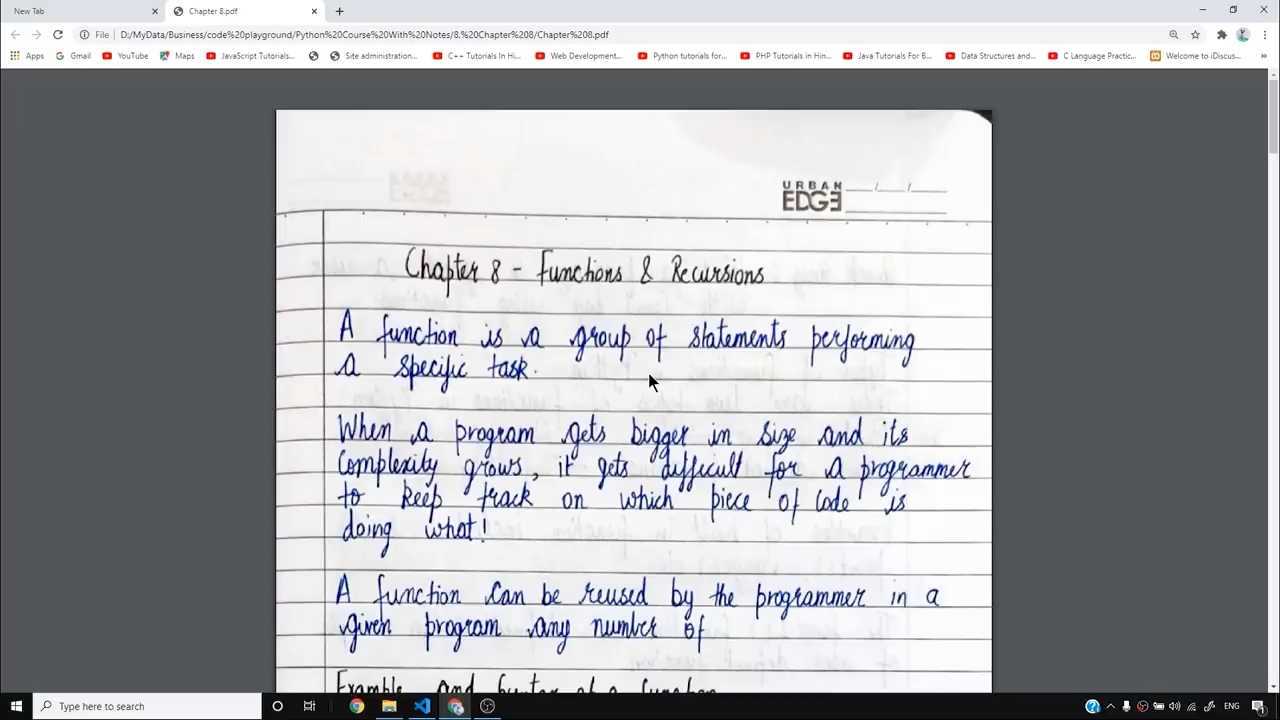 New Tab
Chapter 8.pdf
File | D:/MyData/Business/code%20playground/Python%20Course%20With%20Notes/8.%20Chapter%208/Chapter%208.pdf
Apps Gmail YouTube Maps JavaScript Tutorials... Site administration... C++ Tutorials In Hi... Web Development... Python tutorials for... PHP Tutorials in Hin... Java Tutorials For B... Data Structures and... C Language Practic... Welcome to iDiscus... »
URBAN
EDGE
Chapter 8 - Functions & Recursions
A function is a group of statements performing
a specific task.
When a program gets bigger in size and its
Complexity grows, it gets difficult for a programmer
to keep track on which piece of code is
doing what!
A function can be reused by the programmer in a
given program any number of
Example and Syntax of a function
Type here to search
ENG